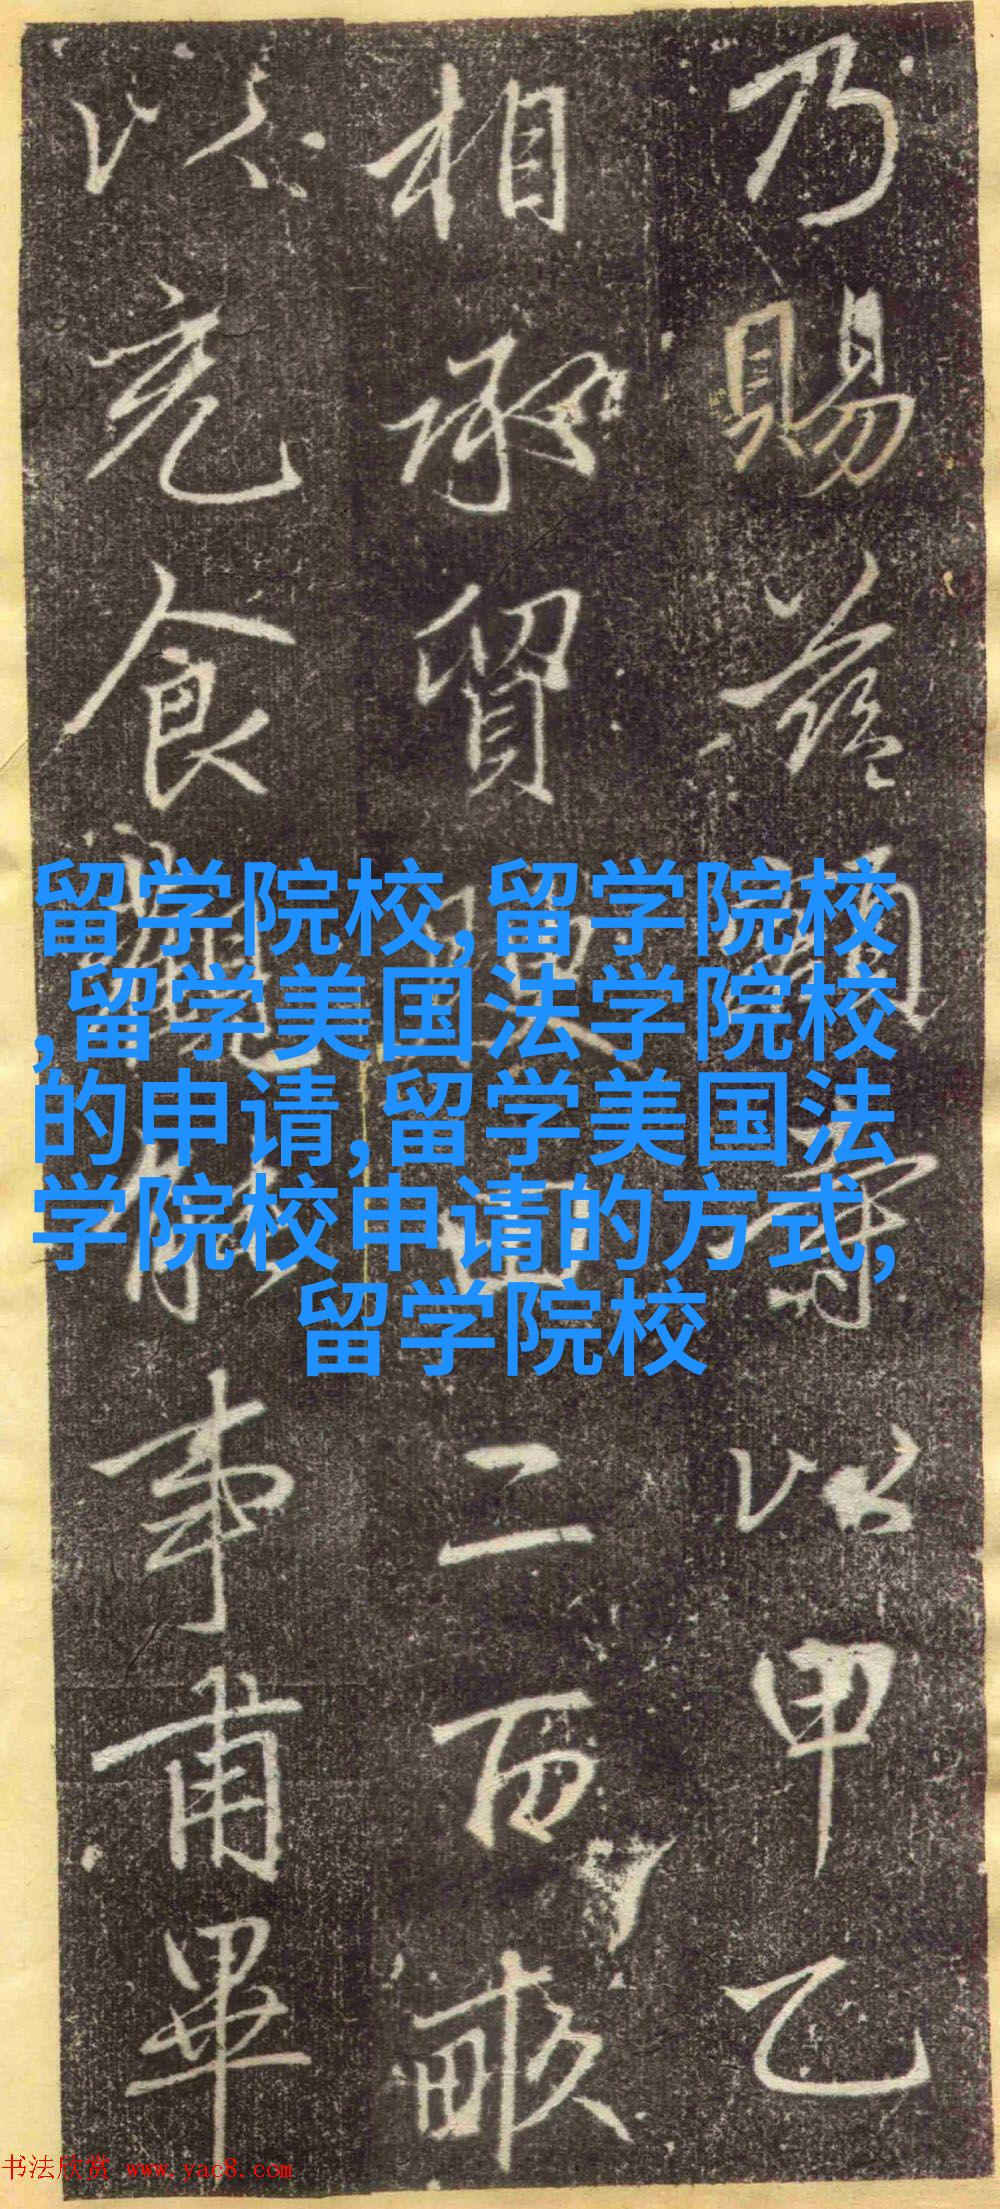 乃賜益州尋以甲乙
相承貿
二百畝
以充食
事甫畢
留学院校,留学院校
,留学美国法学院校
的申请,留学美国法
学院校申请的方式,
留学院校
书法欣赏 www.yac8.com